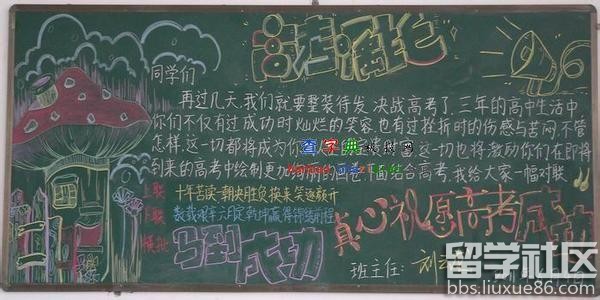 同学们
再过几天,我们就要整装待发,决战高考了,三年的高中生活中
你们不仅有过成功时灿烂的笑容,也有过挫折时的伤感与苦闷,不管
怎样,这一切都将成为你 这一切也将激励你们在即将
到来的高考中绘制更 的画卷,面临高考,我给大家一幅对联
上联 十年苦读一朝决胜负换来笑逐颜开
下联 数载艰辛六月定乾坤赢得锦绣前程
横批 马到成功
真心祝愿高考成功
班主任:刘
留学社区
bbs.liuxue86.com